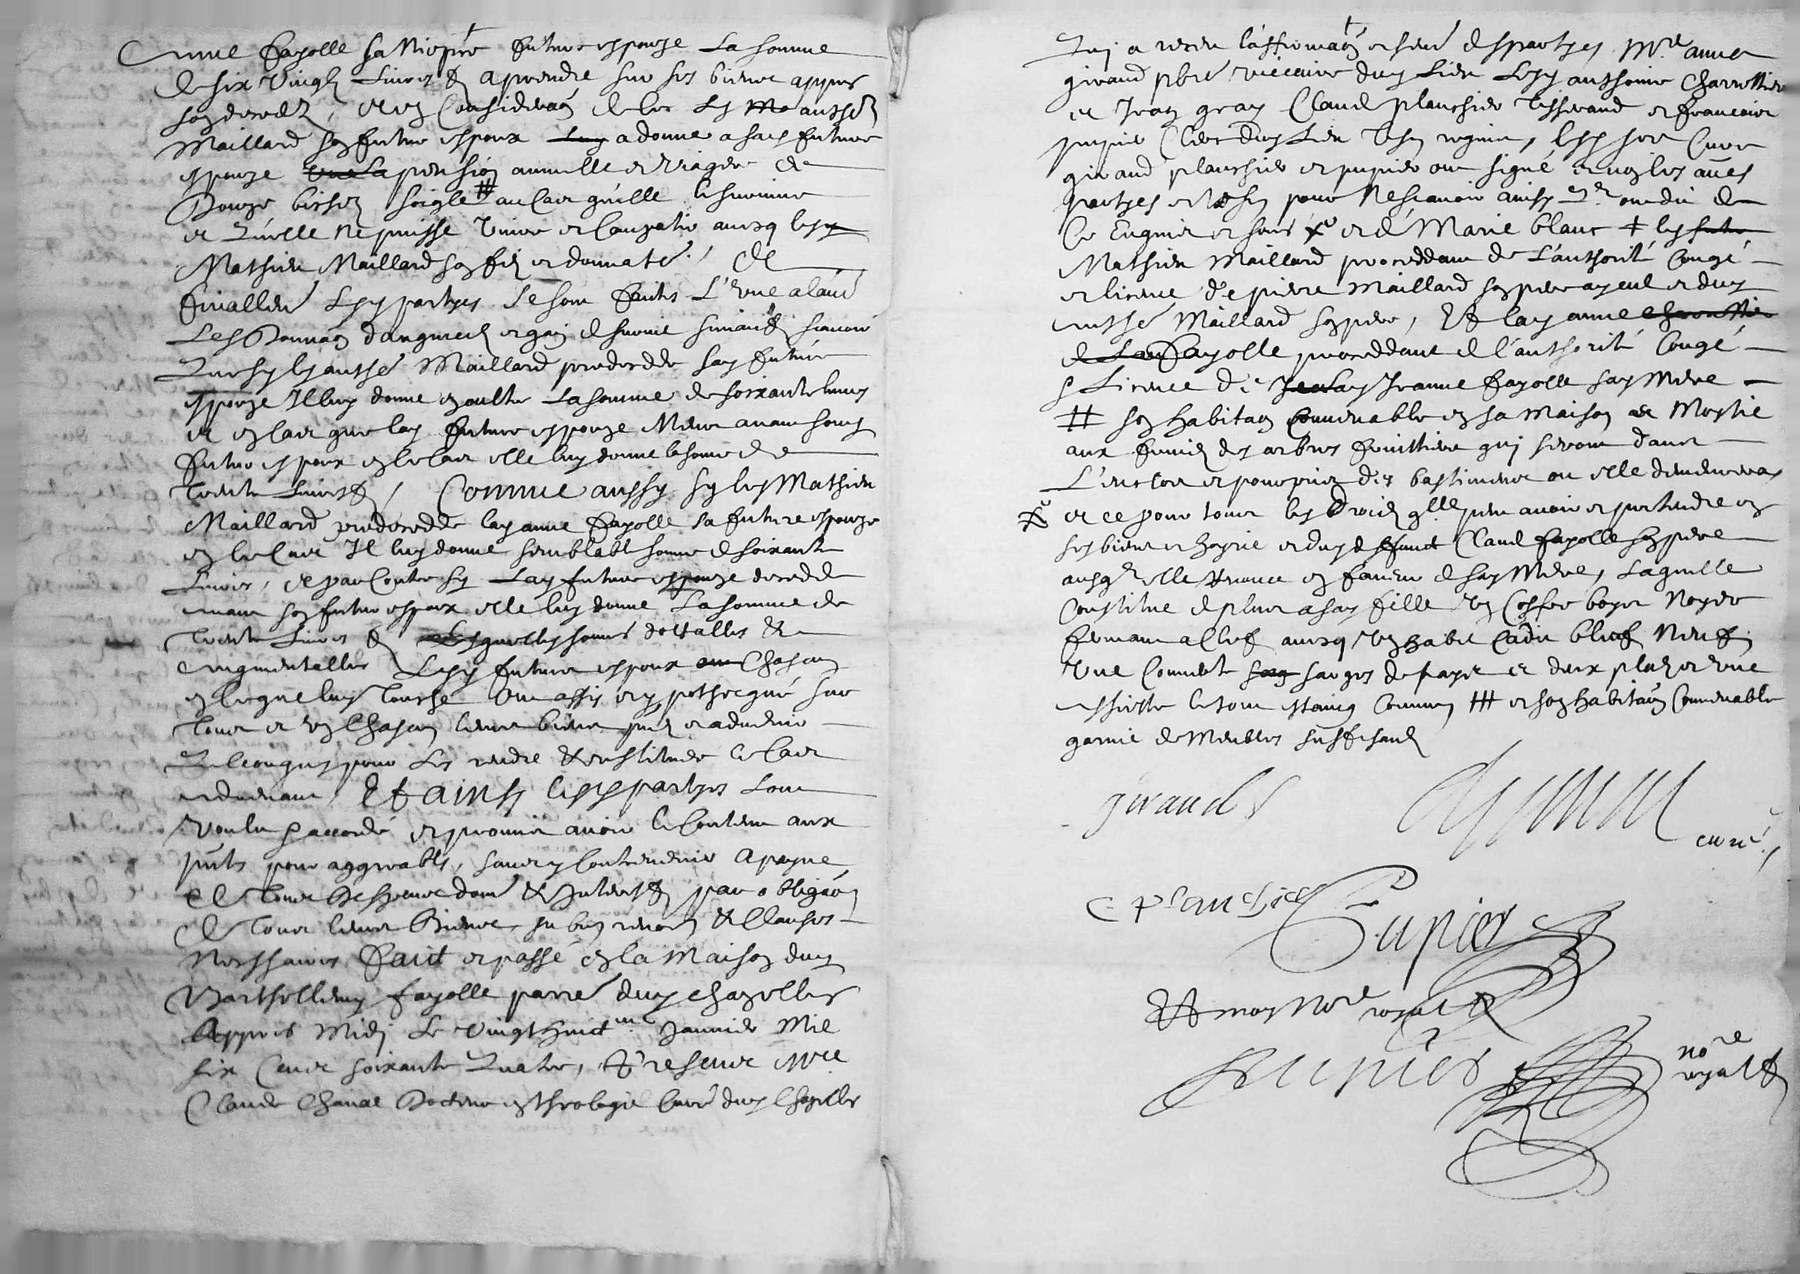 Anne fayolle sa niepce + future espouze la somme
de six vingtz livres t. a prendre sur ses biens appres
son deceds, et en consideraon de ce led. anthe
Maillard son futur espoux a donne a sad. future
espouze pension annuelle et viagere de
douze bichez soigle # au cas quelle survive
et quelle ne puisse vivre et compatir avecq led.
Mathieu Maillard son filz et donnate, et
finallem. lesd. parties se sont faictz l'une a laue
les donnaons daugment et gain de survie suivantes scavoir
que sy led. anthe Maillard precedde sad. future
espouze Il luy donne en oultre la somme de soixante livres
et en cas que lad. future espouze Meure avant sond.
futur espoux en ce cas elle luy donne la somme de
trente livres t., Comme aussy sy led. Mathieu
Maillard precedde lad. anne fayolle sa future espouze
en ce cas Il luy donne semblable somme de soixante
livres, et par contre sy lad. future espouze decedde
avant son futur espoux elle luy donne la somme de
trente livres t. lesquelles sommes dottalles et
augmentalles lesd. futurs espoux chascun
en ce que luy touche ont assis et ypothecqué sur
tous et un chascun leurs biens puts et advenir
quelconques pour les rendre et restituer le cas
advenant, Et ainsy lesd. parties lont
voulu accordé et promis avoir le contenu aux
puts pour aggreable, sans y contrevenir a peyne
de tous despens dom. et Interestz par obligaon
de tous leurs biens, renon. et clauses
necessaires faict et passé en la maison dud.
Barthellemy fayolle parre dud. chazelles
appres Midy le vingt huict.me Janvier Mil
six cent soixante quatre, et presence Mre
Claude Chanal docteur en theologie curé dud. Chazelles
quy a receu laffirmaon et serm. desd. parties, Mre anne
giraud pbre viccaire dud. lieu led. anthoine Charrettier
et Jean gray Claud planchier tisserand et francois
pupier clerc dud. lieu, lesd. srs curé
giraud planchier et pupier ont signé et non les aues
parties et tesm. pour ne scavoir ainsy quilz ont dict de
ce enquis et dé Marie blanc + led.
Mathieu Maillard proceddant de l'authorité congé
et licence de pierre Maillard son pere ayeul et dud.
anthe Maillard son pere, Et lad. anne
fayolle proceddant de l'authorité congé
& licence de lad. Jeanne fayolle sad. Mere
# son habitaon convenable en sa maison et Moytié
aux fruictz des arbres fruittiers quj seront dans
L'enclos et pourpris des bastimens ou elle demeurera
X et ce pour tous les droictz qlle peut avoir et pretendre es
ses biens et hoyrie dud. deffunct Claud fayolle son pere
ausqlz elle renonce en faveur de sad. Mere, laquelle
constitue de plus a sad. fille un coffre boys noyer
fermant a clef avecq un habit cadis bleuf neuf
une couverte sarges de pays et deux platz et une
assiette le tout estaing commun ## et son habitaon convenable
garnie de Meubles suffisantz
giraud
Chanal curé
C planchier
Pupier
Et moy Nore royal
Pupier nore royal